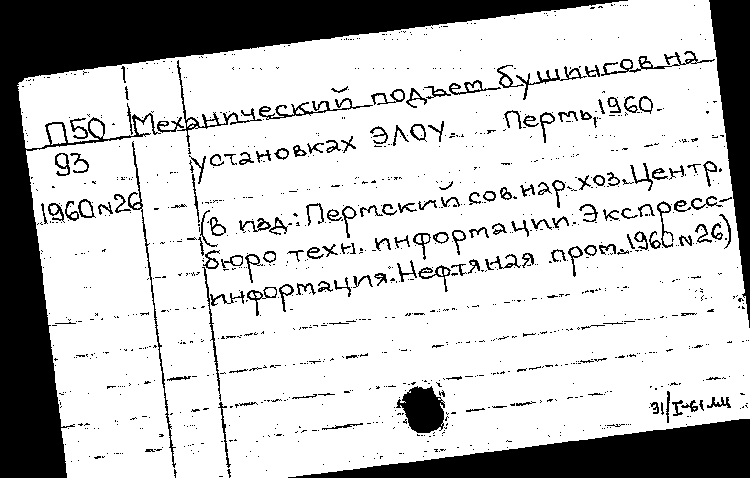 П50 Механический подъем бушингов на
93 установках ЭЛОУ. Пермь, 1960.
1960 N26
(В изд.: Пермский сов. нар. хоз. Центр.
бюро техн. информации. Экспресс-
информация. Нефтяная пром. 1960 N 26.)
31/I-61